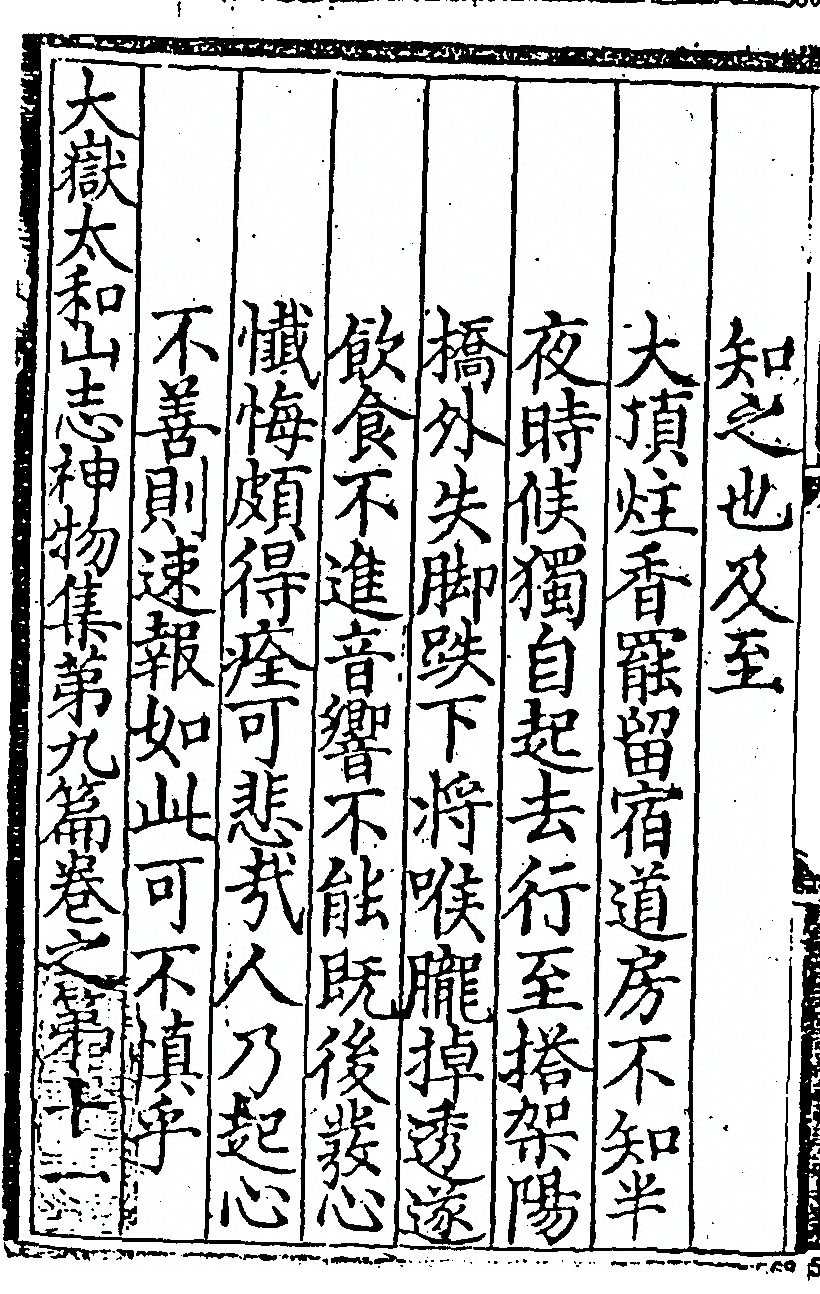 知之也及至
大頂炷香罷留宿道房不知半
夜時候獨自起去行至搭架陽
橋外失脚跌下將喉朧掉透遂
飲食不進音響不能既後發心
懺悔頗得痊可悲哉人乃起心
不善則速報如此可不慎乎
大嶽太和山志神物集第九篇卷之第十一